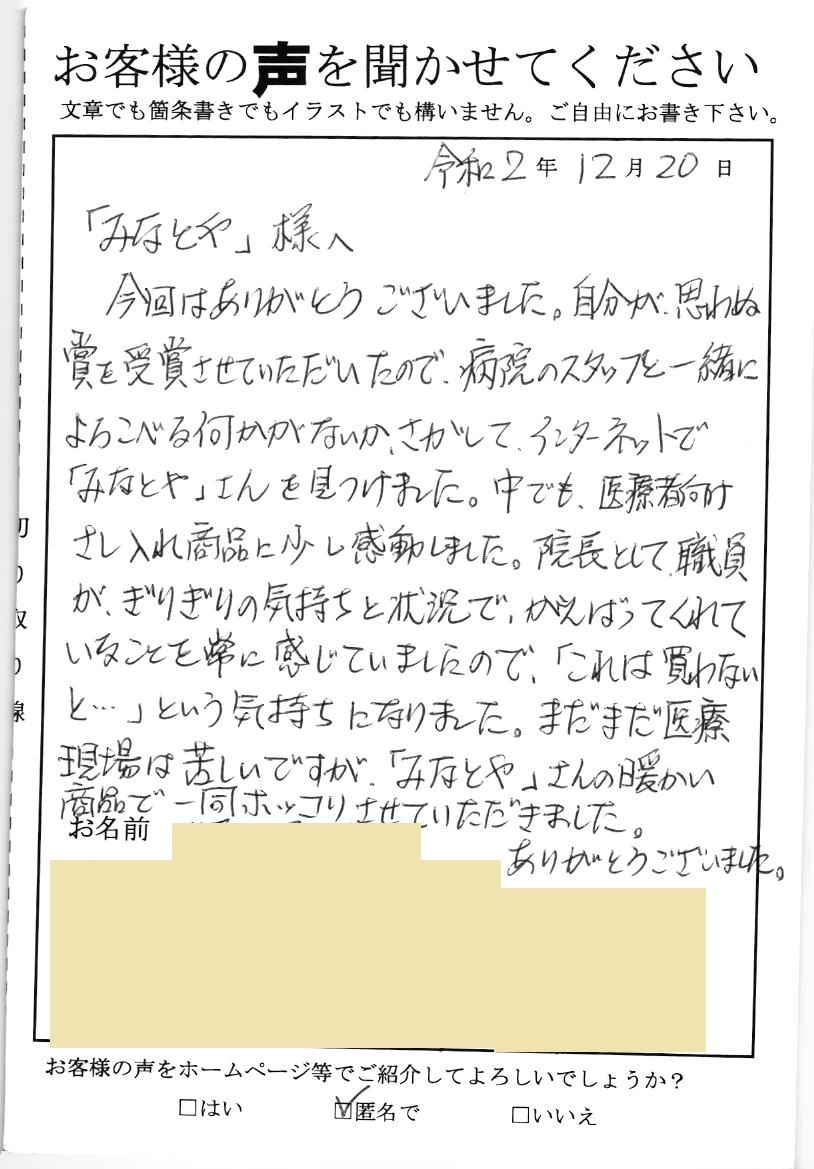 お客様の声を聞かせてください
文章でも箇条書きでもイラストでも構いません。ご自由にお書き下さい。
令和2年 12月 20日
「みなとや」様へ
今回はありがとうございました。自分が、思わぬ
賞を受賞させていただいたので、病院のスタッフと一緒に
よろこべる何かがないか、さがして、インターネットで
「みなとや」さんを見つけました。中でも、医療者向け
さし入れ商品に少し感動しました。院長として、職員
が、ぎりぎりの気持ちと状況で、がんばってくれて
いることを常に感じていましたので、「これは買わない
と…」という気持ちになりました。まだまだ医療
現場は苦しいですが、「みなとや」さんの暖かい
商品で一同ホッコリさせていただきました。
お名前
ありがとうございました。
切り取り線
お客様の声をホームページ等でご紹介してよろしいでしょうか？
□はい ☑匿名で □いいえ